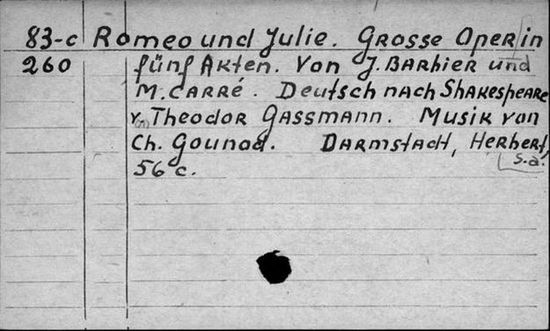 83-c Romeo und Julie. Grosse Oper in
260 fünf Akten. Von J. Barbier und
M. Carré. Deutsch nach Shakespeare
v[on] Theodor Gassmann. Musik von
Ch. Gounod. Darmstadt, Herbert,
s.a.
56 c.